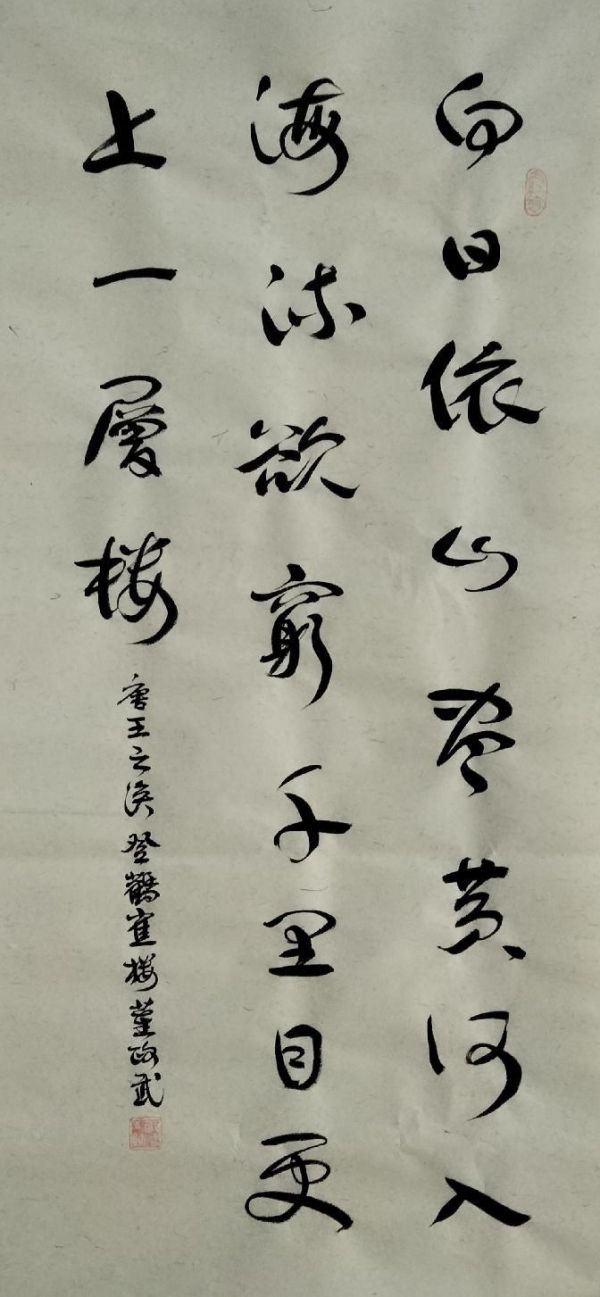 白日依山尽黄河入
海流欲窮千里目更
上一層楼
唐王之涣登鹳雀楼董政武